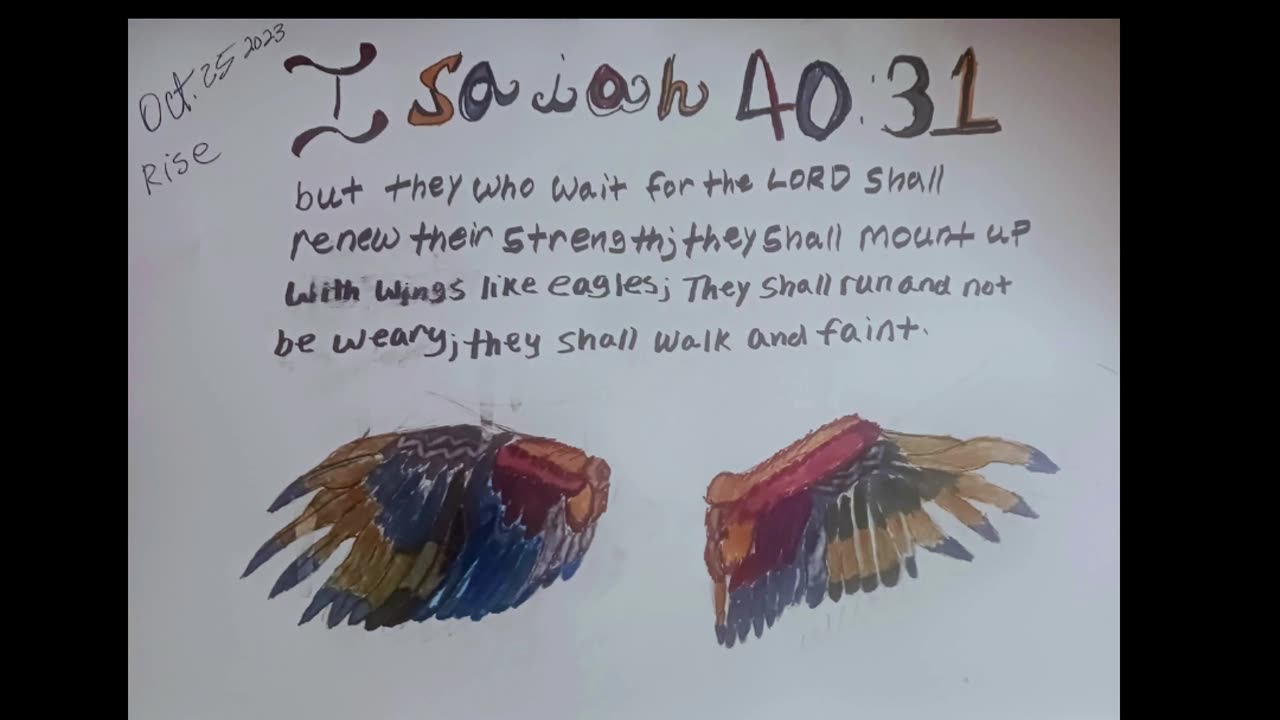 Oct. 25 2023
Rise
Isaiah 40:31
but they who wait for the LORD shall
renew their strength; they shall mount up
with wings like eagles; They shall run and not
be weary; they shall walk and faint.